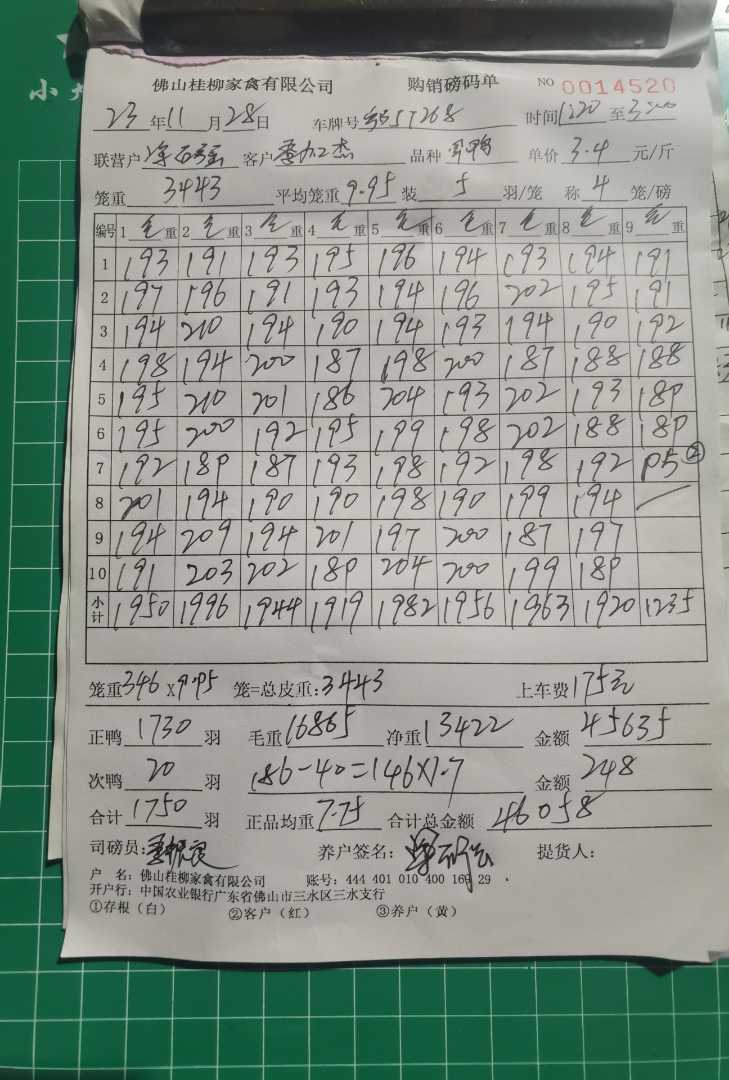 小
佛山桂柳家禽有限公司 购销磅码单 NO 0014520
23年11月28日 车牌号 57268 时间1220至
联营户 客户 杰 品种 鸭 单价 3.4 元/斤
笼重 3443 平均笼重 9.95 装 5 羽/笼 称 4 笼/磅
编号 1 毛重 2 毛重 3 毛重 4 毛重 5 毛重 6 毛重 7 毛重 8 毛重 9 毛重
1 193 191 193 195 196 194 193 194 191
2 197 196 191 193 194 196 202 195 191
3 194 210 194 190 194 193 194 190 192
4 198 194 200 187 198 200 187 188 188
5 195 210 201 186 204 193 202 193 189
6 195 200 192 195 199 198 202 188 189
7 192 189 187 193 198 192 198 192 95②
8 201 194 190 190 198 190 199 194
9 194 209 194 201 197 200 187 197
10 191 203 202 189 204 200 199 189
小计 1950 1996 1944 1919 1982 1956 1963 1920 1235
笼重346X9.95 笼=总皮重:3443 上车费175元
正鸭 1730 羽 毛重16865 净重13422 金额 45635
次鸭 20 羽 186-40=146X1.7 金额 248
合计1750 羽 正品均重 7.75 合计总金额 46058
司磅员: 养户签名: 提货人:
户 名:佛山桂柳家禽有限公司 账号:444 401 010 400 169 29
开户行:中国农业银行广东省佛山市三水区三水支行
①存根(白) ②客户(红) ③养户(黄)